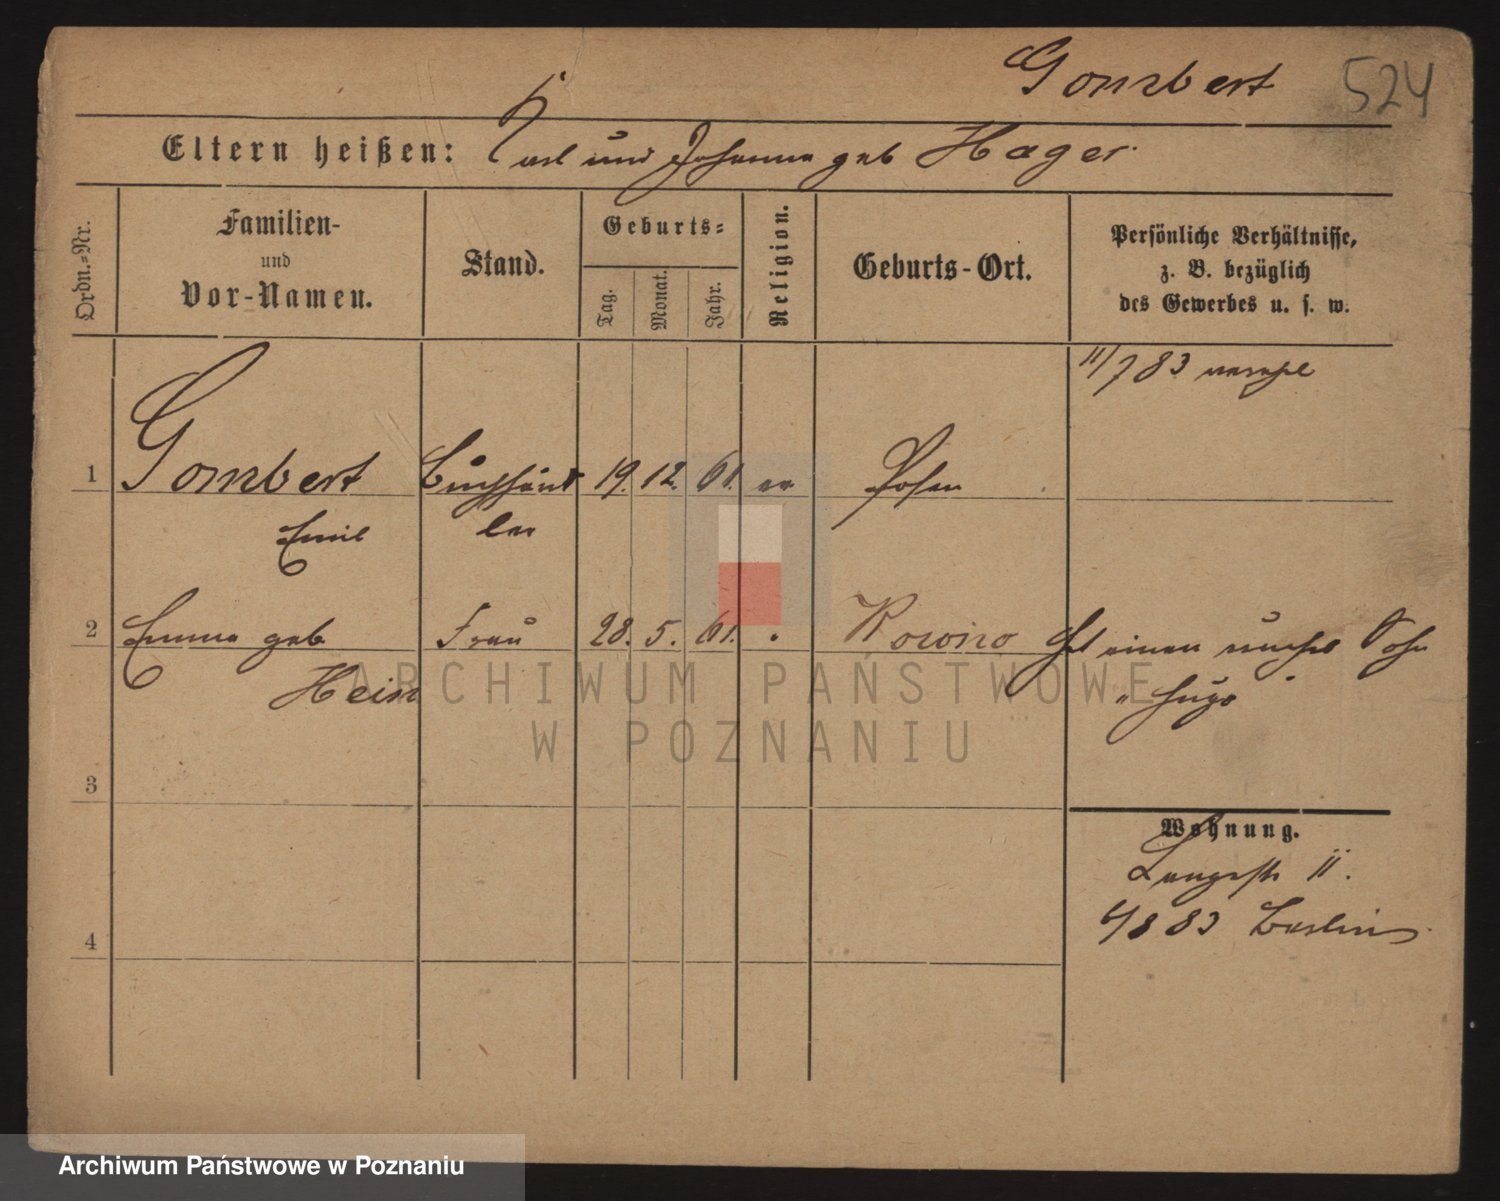 Gombert 524
Eltern heißen: Carl und Johanna geb Hager
Ordn.=Nr.
Familien-
und
Vor-Namen.
Stand.
Geburts=
Tag.
Monat.
Jahr.
Religion.
Geburts-Ort.
Persönliche Verhältnisse,
z. B. bezüglich
des Gewerbes u. s. w.
11/7 83 verehl
1 Gombert Buchhänd 19. 12. 61. ev Posen
Emil ler
2 Emma geb Frau 28. 5. 61. " Hat einen unehel Sohn
Hein "Hugo"
ARCHIWUM PAŃSTWOWE
W POZNANIU
3
Wohnung.
Langestr 11.
6/8 83 Berlin
4
Archiwum Państwowe w Poznaniu